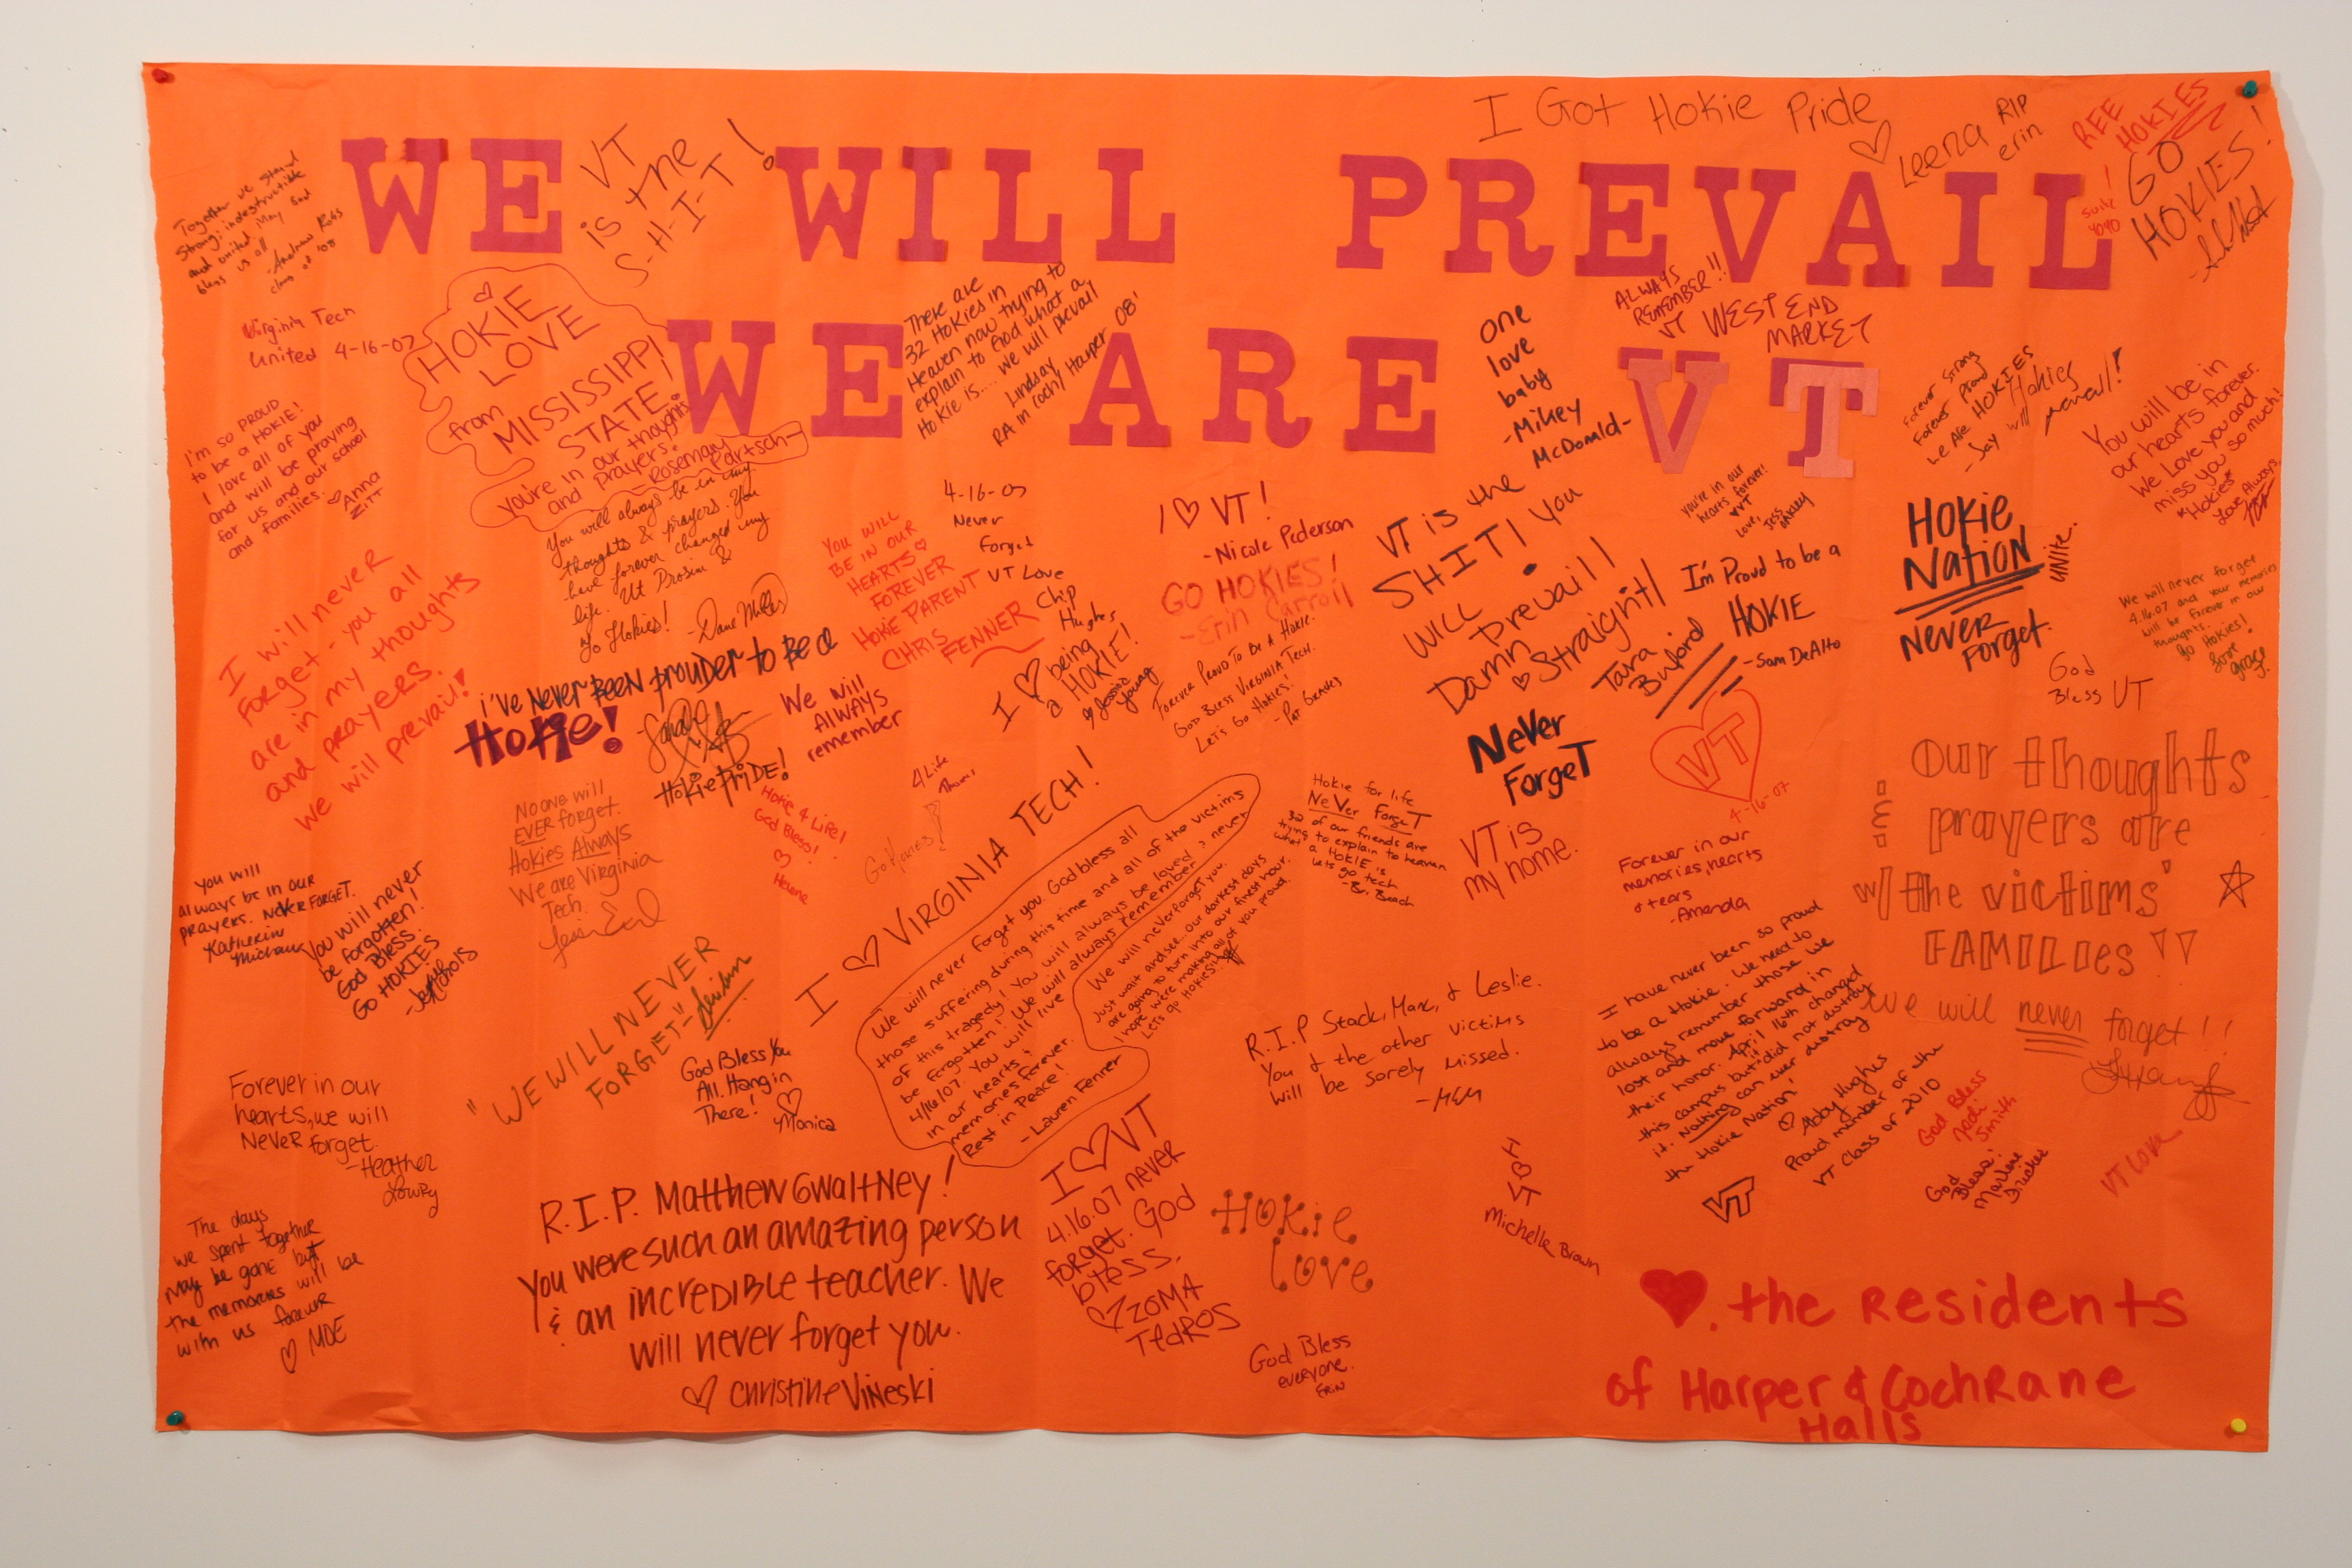 WE WILL PREVAIL
WE ARE VT
Together we stand
strong: indestructible
and united. May God
bless us all
class of '08
VT
is the
S-H-I-T!
I Got Hokie Pride
Leena
RIP
erin
REE
HOKIES
!
Suite
4040
GO
HOKIES!
Virginia Tech
United 4-16-07
HOKIE
LOVE
from
MISSISSIPPI
STATE!
you're in our thoughts
and prayers!
- Rosemary
Partsch-
There are
32 Hokies in
Heaven now trying to
explain to God what a
Hokie is.... we will prevail
Lindsay
RA in Coch/Harper 08'
one
love
baby
-Mikey
McDonald-
ALWAYS
REMEMBER!!
VT WEST END
MARKET
Forever Strong
Forever Proud
We Are HOKIES
Hokies
will prevail!
- Jay
You will be in
our hearts forever.
We Love you and
miss you so much!
Hokies
Love Always,
I'm so PROUD
to be a HOKIE!
I love all of you
and will be praying
for us and our school
and families.
Anna
Zitt
You will always be in my
thoughts & prayers. You
have forever changed my
life. Ut Prosim &
Go Hokies!
YOU WILL
BE IN OUR
HEARTS
FOREVER
HOKIE PARENT
CHRIS
FENNER
4-16-07
Never
Forget
VT Love
Chip
Hughes
I ♡ VT!
-Nicole Pederson
GO HOKIES!
-Erin Carroll
VT is the
SHIT! you
WILL
prevail!
Damn
Straight!
Tara
Buford
you're in our
hearts forever!
♥VT
Love,
Jess
I'm Proud to be a
HOKIE
-Sam DeAlto
HOKIE
NATION
UNITE.
NEVER
Forget.
We will never forget
4.16.07 and your memories
will be forever in our
thoughts.
Go Hokies!
love
grace
God
Bless VT
I will never
forget - you all
are in my thoughts
and prayers.
we will prevail!
i've NeveR BeeN prouder to Be a
HoKie!
HoKie PRIDE!
We Will
ALWAYS
remember
I ♡ being
a HOKIE!
Jessica
Young
Forever Proud To Be A Hokie.
God Bless Virginia Tech.
Let's Go Hokies!
Never
Forget
VT
4-16-07
VT is
my home.
Forever in our
memories, hearts
& tears
-Amanda
Our thoughts
& prayers are
w/ the victims'
FAMILIES
We will never forget!!
NO ONE WILL
EVER forget.
Hokies Always
We are Virginia
Tech
Hokie 4 Life!
God Bless!
♡
Helene
4 Life
Go Hokies!
I ♡ VIRGINIA TECH!
We will never forget you. God bless all
those suffering during this time and all of the victims
of this tragedy! You will always be loved & never
be forgotten! We will always remember
4/16/07. You will live
in our hearts &
memories forever.
Rest in Peace!
-Lauren Fenner
We will never forget you.
Just wait and see... our darkest days
are going to turn into our finest hour.
I hope we're making all of you proud.
Let's go Hokies!
Hokie for life
NeVer ForgeT
32 of our friends are
trying to explain to heaven
what a HOKIE is
Let's go tech
-Bri Beach
You will
always be in our
prayers. NEVER FORGET.
Katherine
You will never
be forgotten!
God Bless.
GO HOKIES
"WE WILL NEVER
FORGET"
God Bless You
All. Hang in
There!
♡
Monica
R.I.P Stack, Marc, & Leslie.
You & the other victims
will be sorely missed.
-MEM
I have never been so proud
to be a Hokie. We need to
always remember those we
lost and move forward in
their honor. April 16th changed
this campus but did not destroy
it. Nothing can ever destroy
the Hokie Nation!
♡ Abby Hughes
Proud member of the
VT Class of 2010
VT
God Bless
Jodi
Smith
God
Bless!
Marlene
VT Love
Forever in our
hearts, we will
NeVeR forget.
-Heather
Lowry
The days
we spent together
may be gone but
the memories will be
with us forever
♡ MOE
R.I.P. Matthew Gwaltney!
You were such an amazing person
& an incredible teacher. We
will never forget you.
♡ Christine Vineski
I ♡ VT
4.16.07 never
forget. God
bless.
♡ ZZOMA
TedROS
Hokie
Love
God Bless
everyone.
Erin
Michelle Brown
♥. the Residents
of Harper & Cochrane
Halls